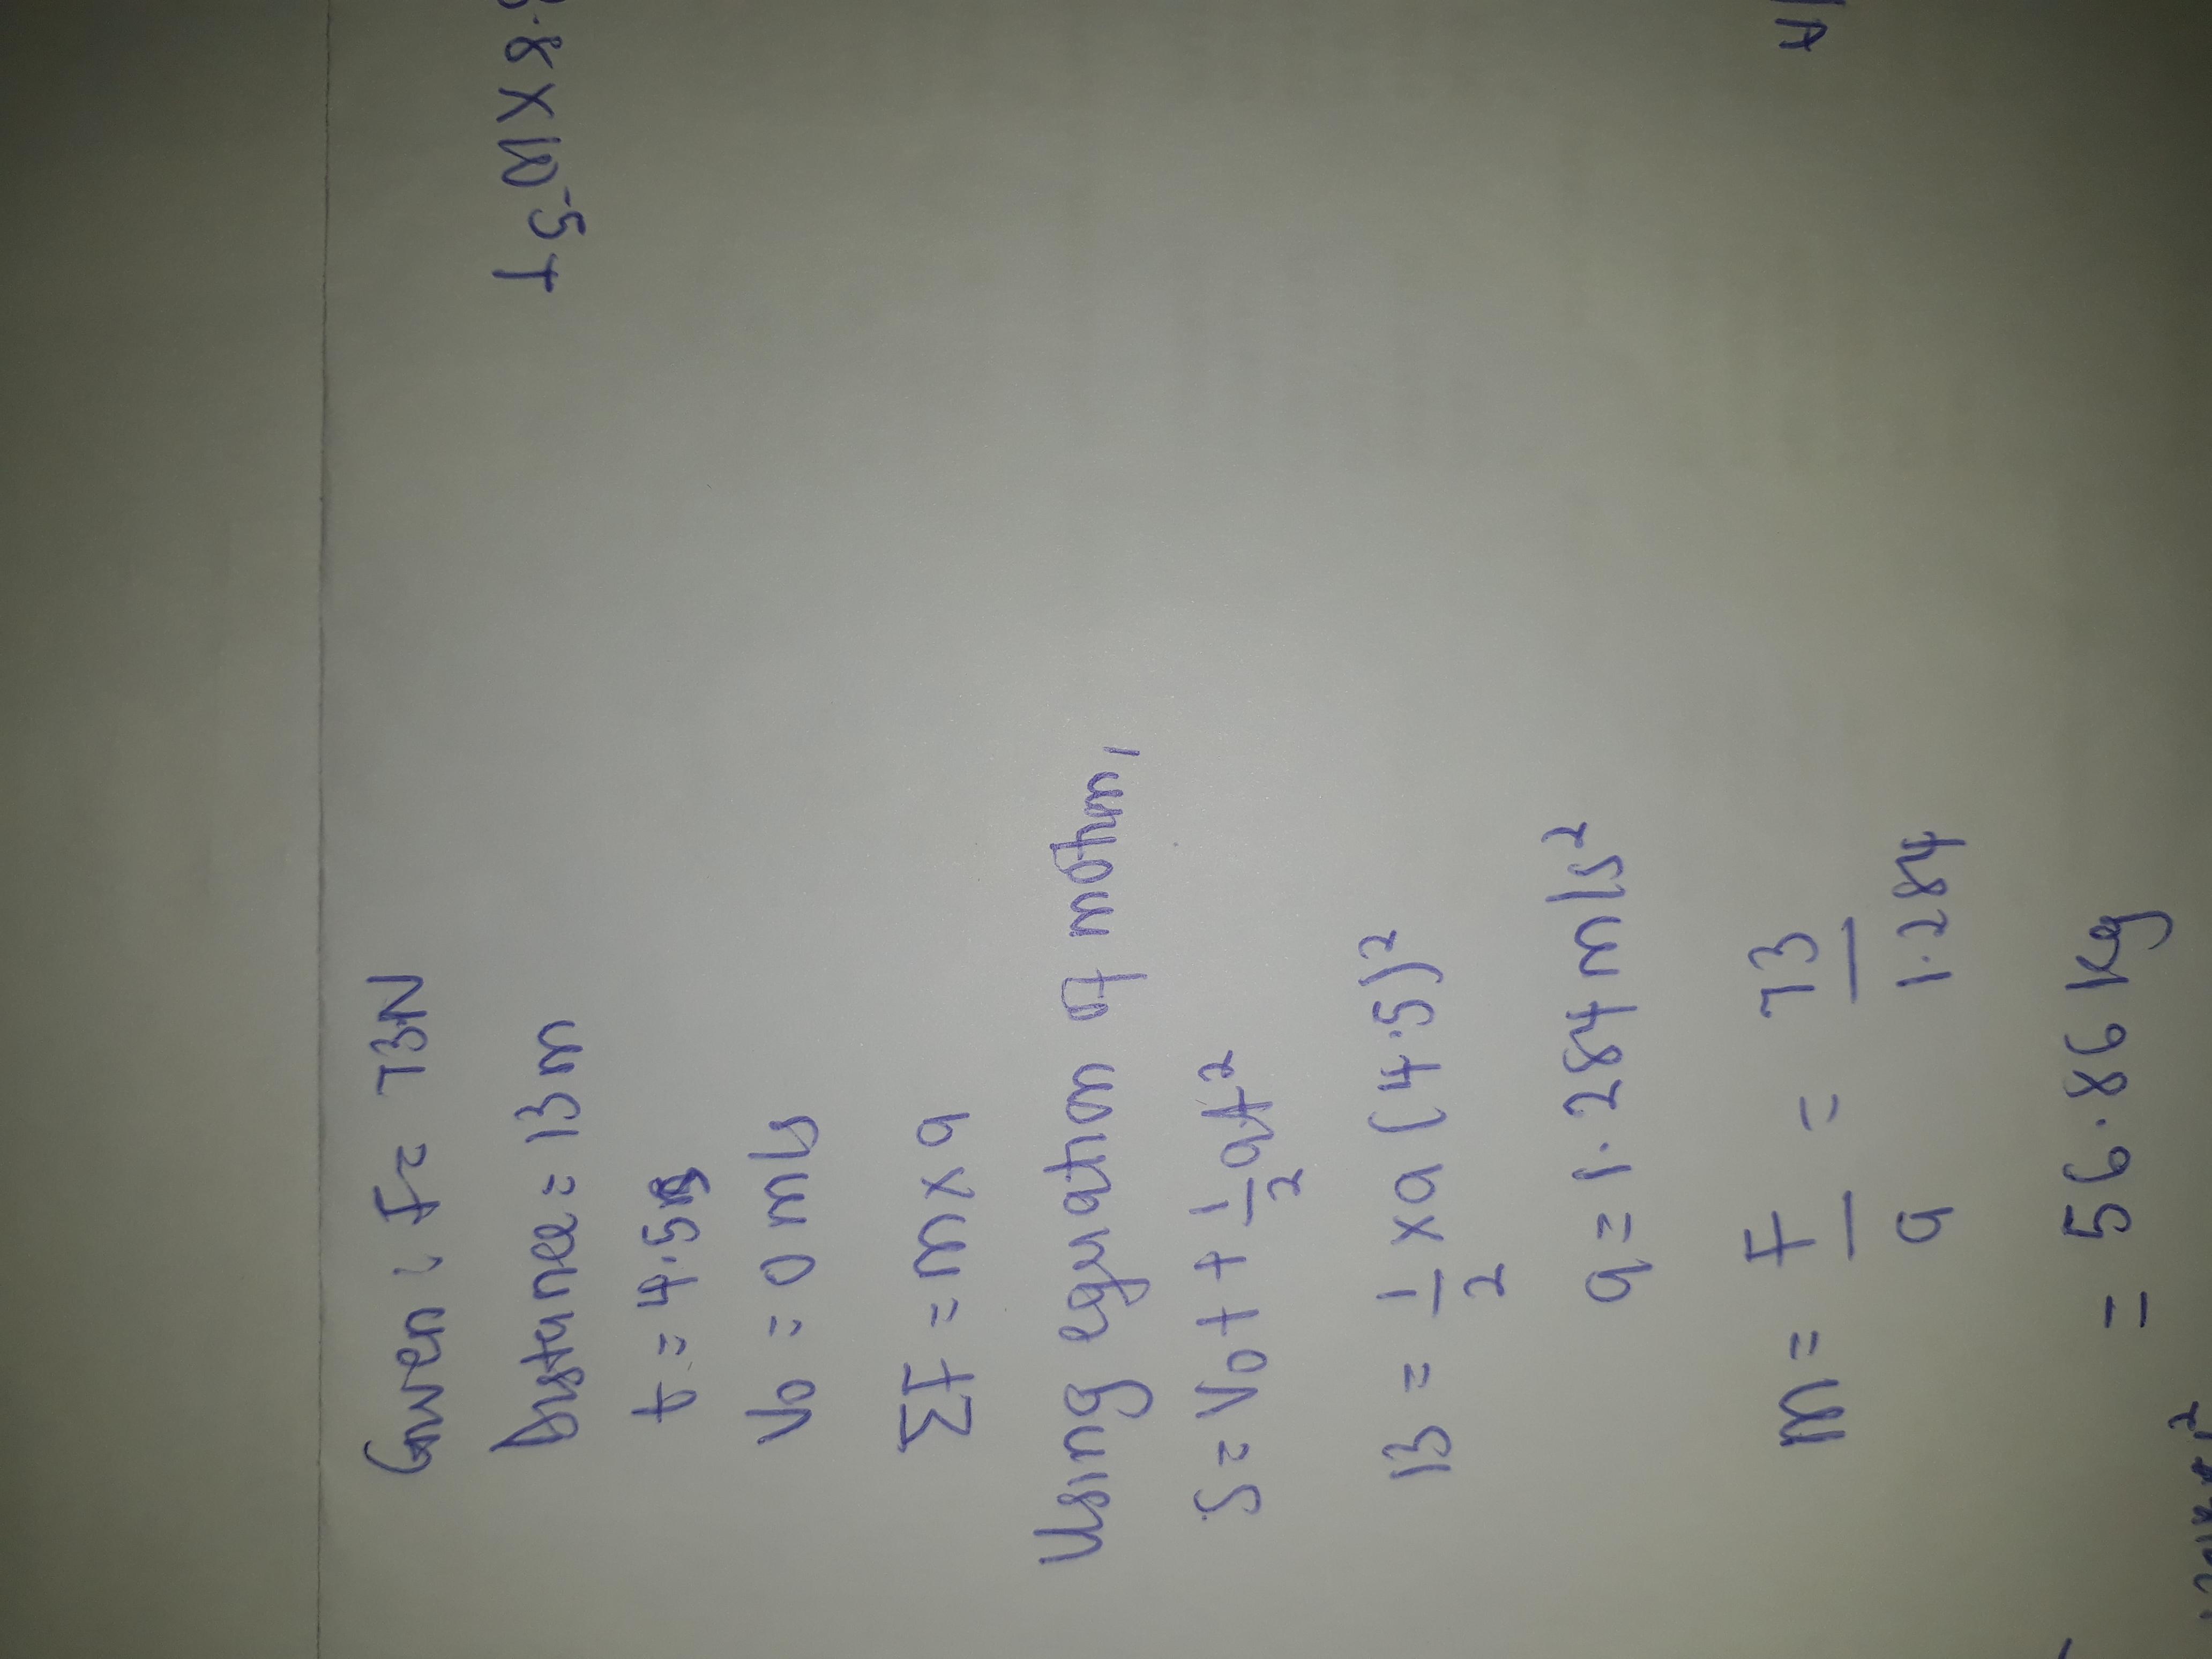 Given : F= 73N
8×10^-5 T
Distance = 13m
t = 4.5s
V0 = 0 m/s
ΣF = m×a
Using equation of motion,
S = V0t + 1/2 at^2
13 = 1/2 × a (4.5)^2
a = 1.284 m/s^2
m = F/a = 73/1.284
= 56.86 kg